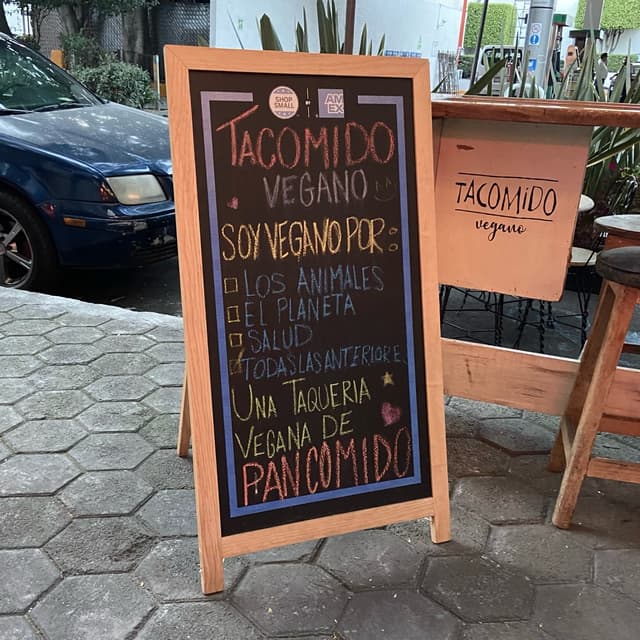 SHOP
SMALL
AM
EX
TACOMIDO
VEGANO
SOY VEGANO POR:
LOS ANIMALES
EL PLANETA
SALUD
TODAS LAS ANTERIORE
UNA TAQUERIA
VEGANA DE
PANCOMIDO
TACOMiDO
vegano